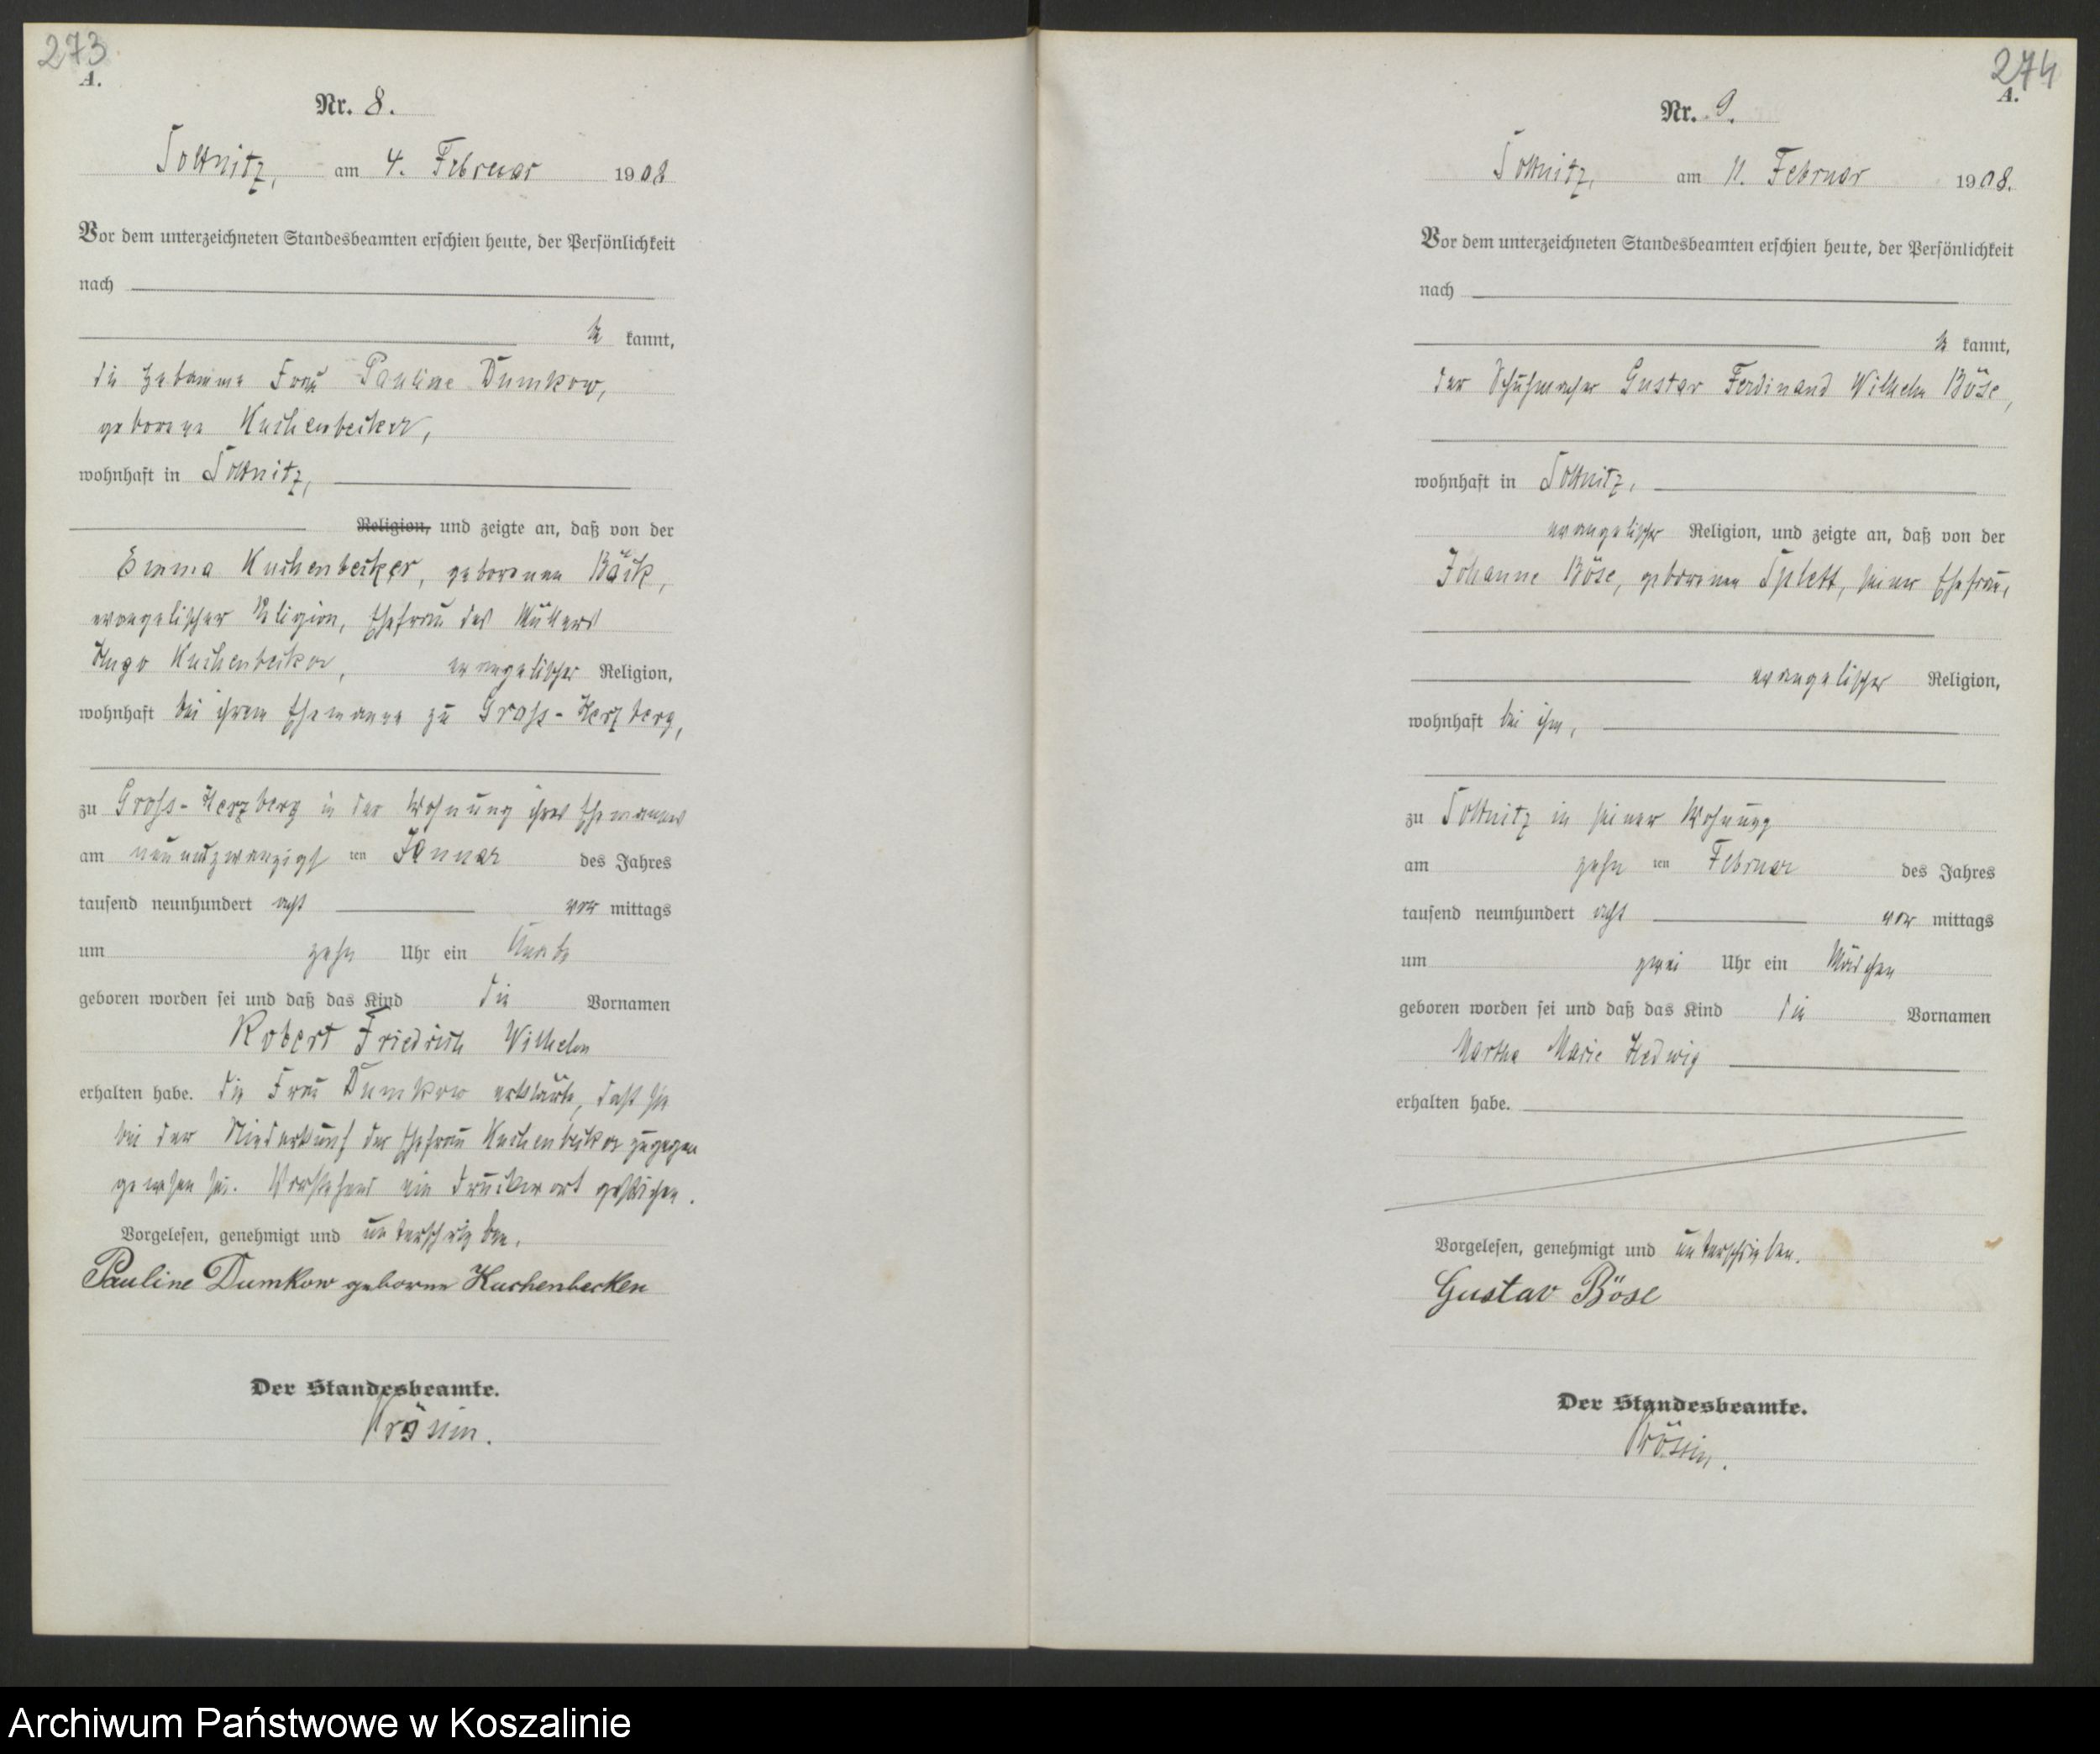 273
A.
Nr. 8.
Soltnitz, am 4. Februar 1908
Vor dem unterzeichneten Standesbeamten erschien heute, der Persönlichkeit
nach
be kannt,
die Hebamme Frau Pauline Dumkow,
geborene Kuchenbecker,
wohnhaft in Soltnitz,
Religion, und zeigte an, daß von der
Emma Kuchenbecker, geborenen Bäck,
evangelischer Religion, Ehefrau des Müllers
Hugo Kuchenbecker, evangelischer Religion,
wohnhaft bei ihrem Ehemanne zu Gross-Herzberg,
zu Gross-Herzberg in der Wohnung ihres Ehemannes
am neunundzwanzigst ten Januar des Jahres
tausend neunhundert acht vor mittags
um zehn Uhr ein Knabe
geboren worden sei und daß das Kind die Vornamen
Robert Friedrich Wilhelm
erhalten habe. Die Frau Dumkow erklärte, daß sie
bei der Niederkunft der Ehefrau Kuchenbecker zugegen
gewesen sei. Vorstehend ein Druckwort gestrichen.
Vorgelesen, genehmigt und unterschrieben.
Pauline Dumkow geborne Kuchenbecker
Der Standesbeamte.
274
A.
Nr. 9.
Soltnitz, am 11. Februar 1908.
Vor dem unterzeichneten Standesbeamten erschien heute, der Persönlichkeit
nach
be kannt,
der Schuhmacher Gustav Ferdinand Wilhelm Böse,
wohnhaft in Soltnitz,
evangelischer Religion, und zeigte an, daß von der
Johanne Böse, geborenen Splett, seiner Ehefrau,
evangelischer Religion,
wohnhaft bei ihm,
zu Soltnitz in seiner Wohnung
am zehn ten Februar des Jahres
tausend neunhundert acht vor mittags
um zwei Uhr ein Mädchen
geboren worden sei und daß das Kind die Vornamen
Martha Marie Hedwig
erhalten habe.
Vorgelesen, genehmigt und unterschrieben.
Gustav Böse
Der Standesbeamte.
Archiwum Państwowe w Koszalinie